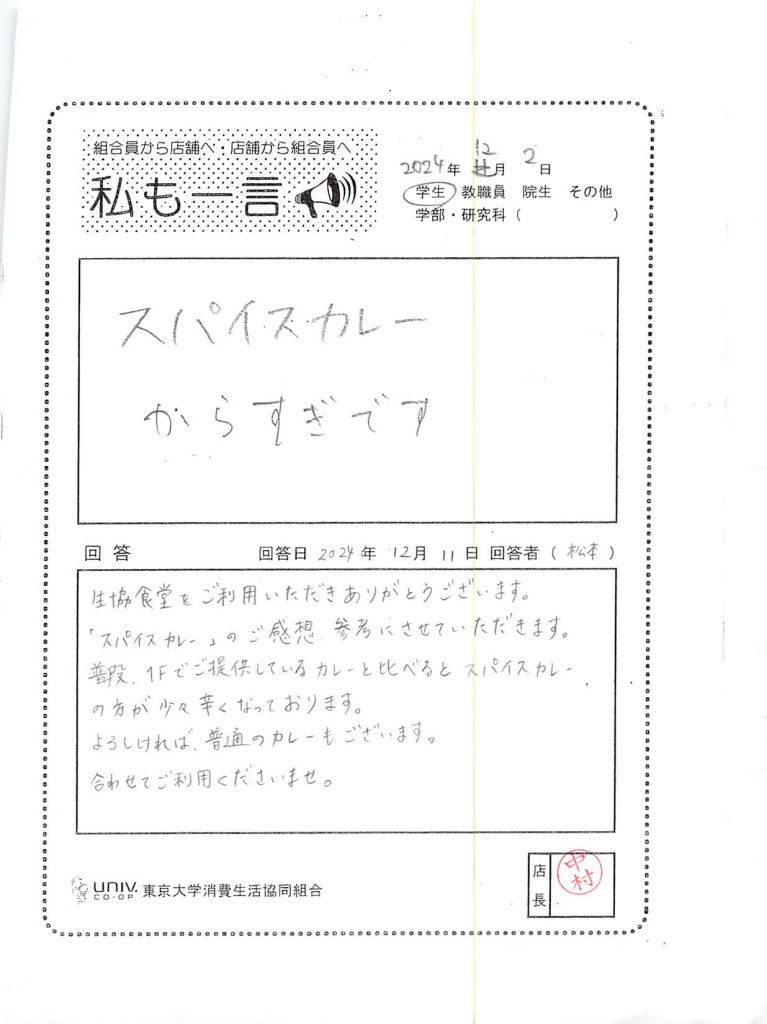 組合員から店舗へ・店舗から組合員へ
私も一言
2024年 12月 2日
学生 教職員 院生 その他
学部・研究科（　　　）
スパイスカレー
からすぎです
回答 回答日 2024年 12月 11日 回答者（松本）
生協食堂をご利用いただきありがとうございます。
「スパイスカレー」のご感想、参考にさせていただきます。
普段、1Fでご提供しているカレーと比べるとスパイスカレー
の方が少々辛くなっております。
よろしければ、普通のカレーもございます。
合わせてご利用くださいませ。
UNIV. CO-OP 東京大学消費生活協同組合
店長
中村